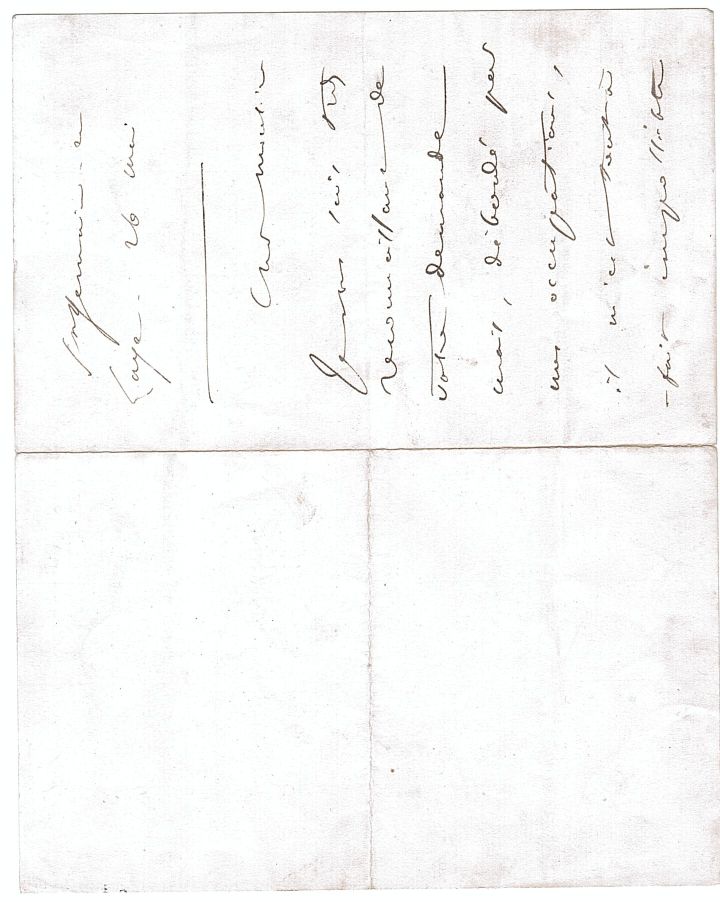 St Germain-en
Laye - 26 mai
Cher Monsieur
Je vous suis très
reconnaissant de
votre demande
mais, débordé par
mes occupations,
il m'est tout à
fait impossible